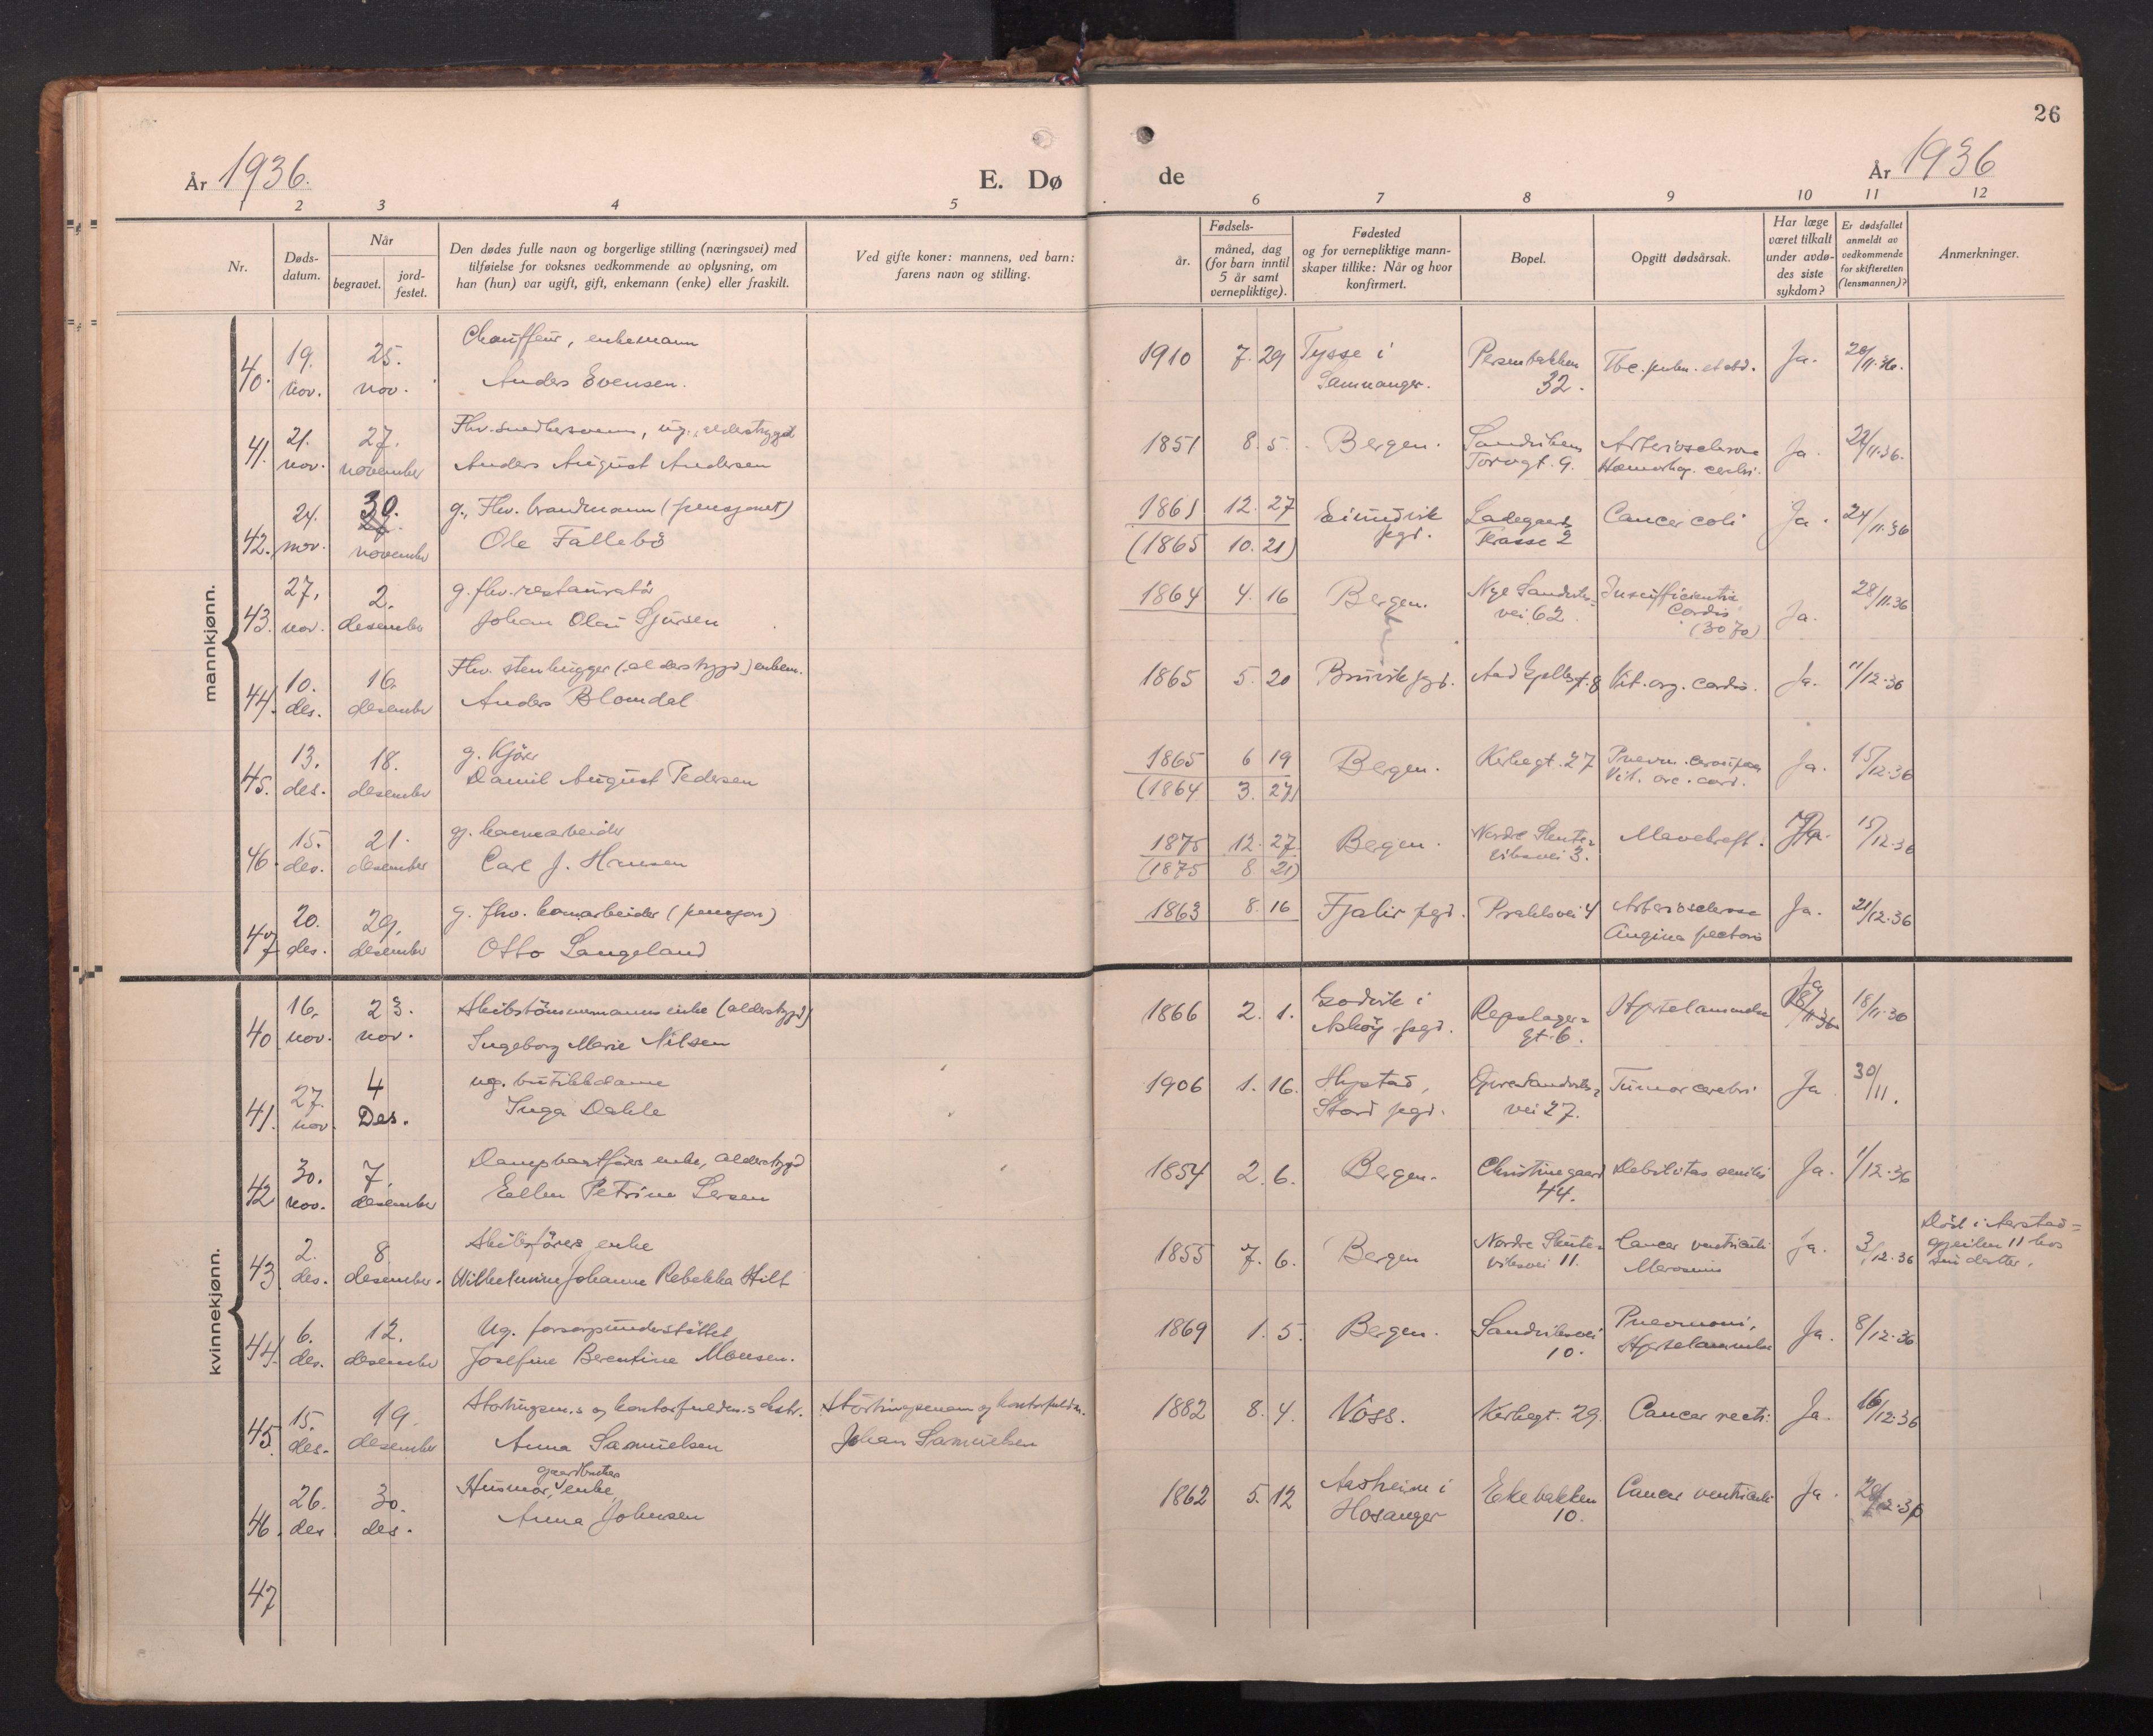 26
År 1936.
E. Dø
de
År 1936
1 2 3 4 5
6 7 8 9 10 11 12
Nr.
Døds-
datum.
Når
begravet.
jord-
festet.
Den dødes fulle navn og borgerlige stilling (næringsvei) med
tilføielse for voksnes vedkommende av oplysning, om
han (hun) var ugift, gift, enkemann (enke) eller fraskilt.
Ved gifte koner: mannens, ved barn:
farens navn og stilling.
Fødsels-
år.
måned, dag
(for barn inntil
5 år samt
vernepliktige).
Fødested
og for vernepliktige mann-
skaper tillike: Når og hvor
konfirmert.
Bopel.
Opgitt dødsårsak.
Har læge
været tilkalt
under avdø-
des siste
sykdom?
Er dødsfallet
anmeldt av
vedkommende
for skifteretten
(lensmannen)?
Anmerkninger.
mannkjønn.
40. 19. nov. 25. nov.
Chauffeur, enkemann
Anders Evensen.
1910 7. 29 Tysse i
Samnanger.
32.
Tbc. pulm. et abd. Ja. 20/11.36.
41. 21. nov. 27. november
Anders August Andersen
1851 8. 5. Bergen.
Sandvikens
Torvgt. 9.
Arteriosclerose
Hæmorhag. cerebri. Ja. 24/11.36.
42. 24. nov. 30. november
g., Fhv. brandmann (pensjonert)
Ole Fallebø
1861 12. 27
(1865 10. 21)
Eivindvik
pgd.
Ladegaards
Terasse 2
Cancer coli Ja. 24/11.36
43. 27. nov. 2. desember
g. fhv. restauratør
Johan Olai Sjursen
1864 4. 16 Bergen.
Nye Sandviks-
vei 62.
Insufficientia
Cordis
Ja. 28/11.36
44. 10. des. 16. desember
Fhv. stenhugger (alderstrygd) enkem.
Anders Blomdal
1865 5. 20 Bruvik pgd. Aad Gjellesgt. 8 Vit. org. cordis. Ja. 11/12.36
45. 13. des. 18. desember
g. Kjører
Daniel August Pedersen
1865 6 19
(1864 3. 27)
Bergen. Kirkegt. 27
Pneum.
Vit. org. cord. Ja. 15/12.36
46. 15. des. 21. desember
g. havnearbeider
Carl J. Hansen
1875 12. 27.
(1875 8. 21)
Bergen.
Nordre Skute-
viksvei 3.
Mavekreft. Ja. 15/12.36
47 20. des. 29. desember
g. fhv. havnarbeider (pensjon)
Otto Langeland
1863 8. 16 Fjaler pgd. Prahlsvei 4
Arteriosclerose
Angina pectoris Ja. 21/12.36
kvinnekjønn.
40 16. nov. 23. nov.
Skibstømmermanns enke (alderstrygd)
Ingeborg Marie Nilsen
1866 2. 1. Godvik i
Askøy pgd.
Repslager-
gt. 6.
Hjertelammelse Ja 18/11.36 18/11.36
41. 27. nov. 4 Des.
ug. butikkdame
Inga Dahle
1906 1. 16. Hystad,
Stord pgd.
Øvre Sandviks-
vei 27.
Tumor cerebri Ja 30/11.
42 30. nov. 7. desember
Dampbaatførers enke, alderstrygd
Ellen Petrine Larsen
1854 2. 6. Bergen.
Christinegaard
44.
Debilitas senilis Ja. 1/12.36
43 2. des. 8 desember.
Skibsførers enke
Wilhelmine Johanne Rebekka Hilt
1855 7. 6. Bergen
Nordre Skute-
viksvei 11.
Cancer ventriculi
Ja. 3/12.36
Død i Aarstad-
11 hos
sin datter.
44. 6. des. 12. desember
Ug. forsorgsunderstøttet
Josefine Berentine Monsen.
1869 1. 5. Bergen.
Sandviksvei
10.
Pneumoni,
Hjertelammelse Ja. 8/12.36
45. 15. des. 19. desember
Stortingsm.s og kontorfuldm.s hustr.
Anna Samuelsen
Stortingsmann og kontorfuldm.
Johan Samuelsen
1882 8. 4. Voss. Kirkegt. 29. Cancer recti. Ja. 16/12.36
46. 26. des 30. des.
gaardbruker
Husmor, enke
Anna Johnsen
1862 5. 12 Aasheim i
Hosanger
Ekebakken
10.
Cancer ventriculi Ja. 28/12.36
47